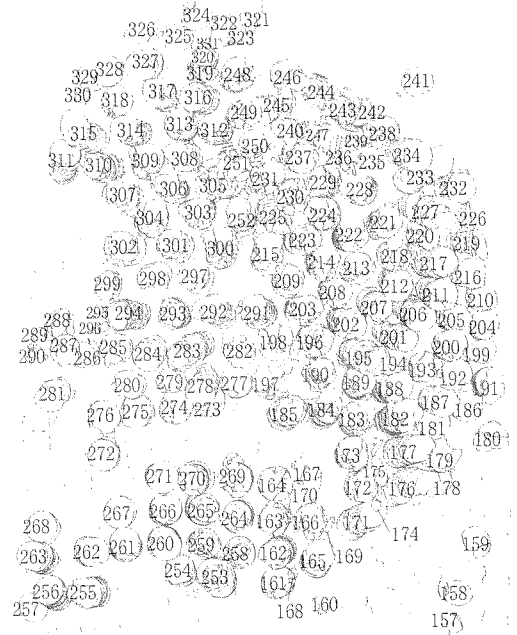 324 322 321
326 325 331 323
327 320
329 328 319 248 246 241
330 318 317 316 244
249 245 243 242
315 314 313 312 240 247 239 238
250
311 310 309 308 251 237 236 235 234
307 306 305 231 229 228 233 232
230
304 303 252 225 224 221 227 226
302 301 300 223 222 220 219
215 214 213 218 217
299 298 297 209 212 216
208 211 210
288 295 294 293 292 291 203 207 206 205
289 296 202 204
290 287 286 285 284 283 282 198 196 201 200 199
195 194 193
281 280 279 278 277 197 190 189 188 192 191
276 275 274 273 185 184 183 182 187 186
181 180
272 173 177 179
271 270 269 164 167 175
170 172 176 178
268 267 266 265 264 163 166 171
174
263 262 261 260 259 258 162 165 169 159
254 253 161
257 256 255 158
168 160 157